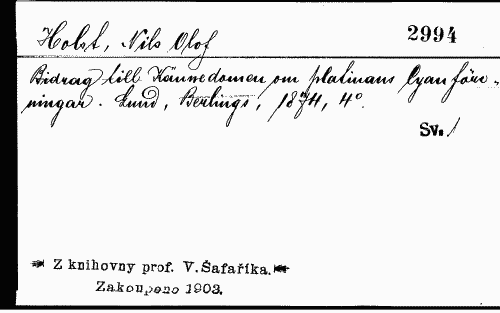 Holst, Nils Olof
2994
Bidrag till Kännedomen om platinans Cyanföre-
ningar. Lund, Berlings, 1874, 4°.
Sv. 1
Z knihovny prof. V. Šafaříka.
Zakoupeno 1903.